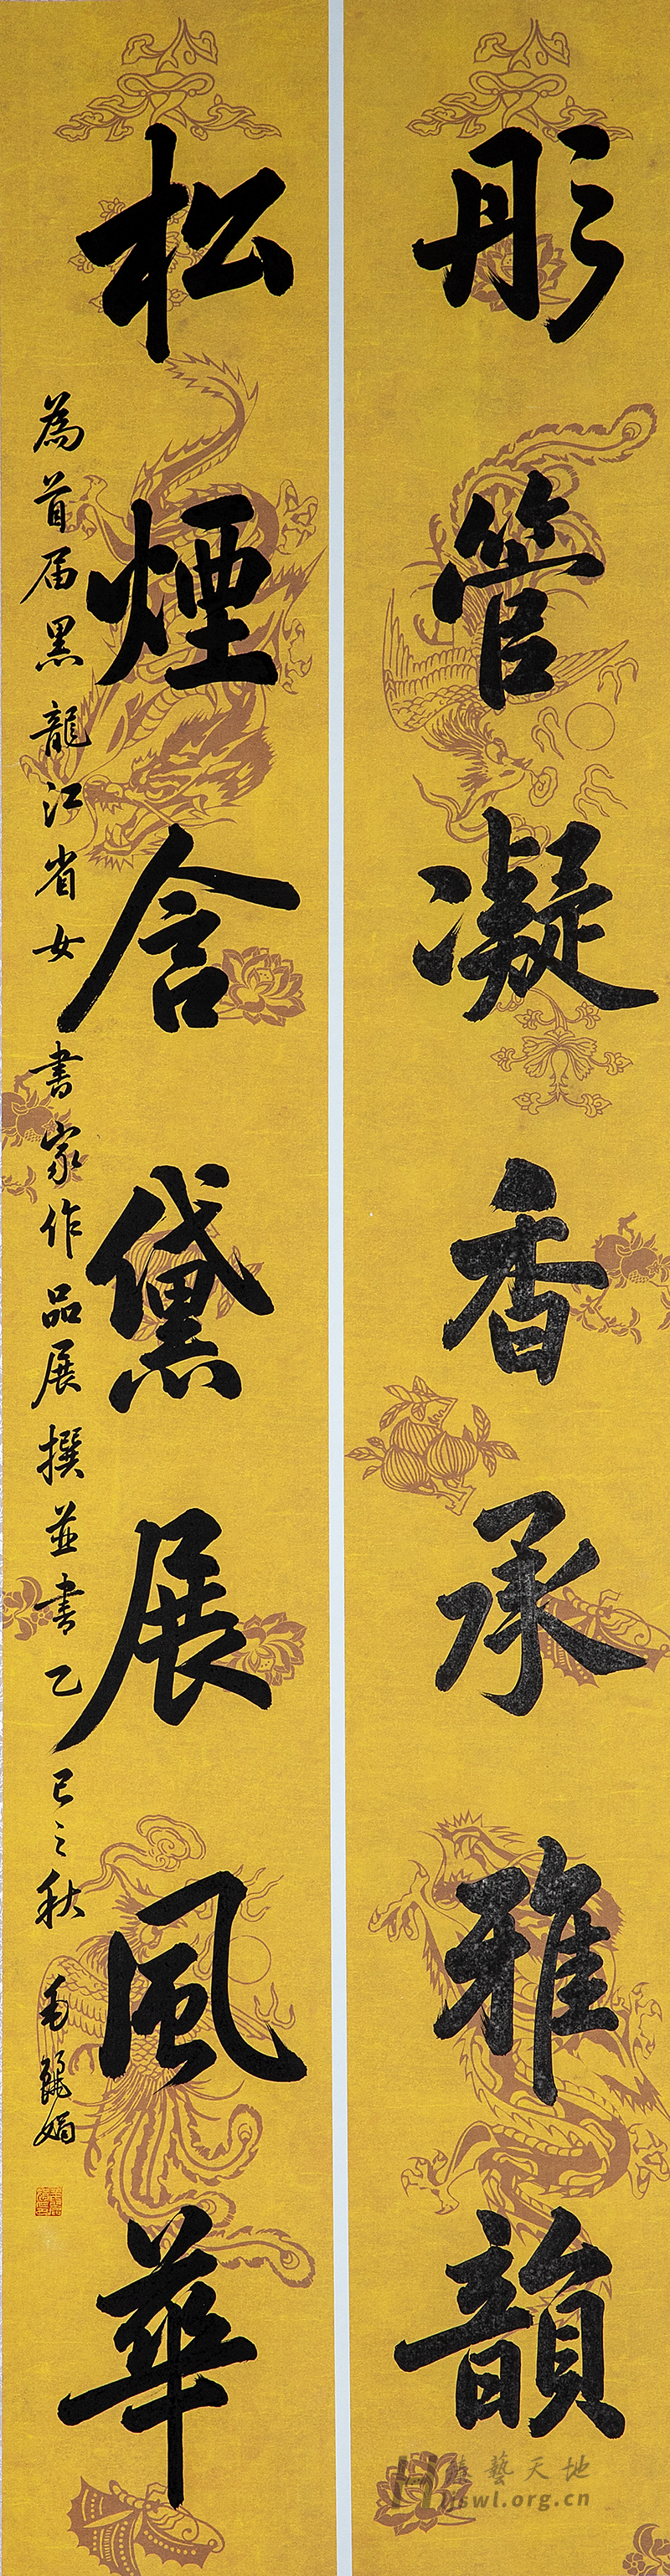 彤管凝香承雅韻
松煙含黛展風華
為首届黑龍江省女書家作品展撰並書乙巳之秋
毛
藝天地
hljswl.org.cn